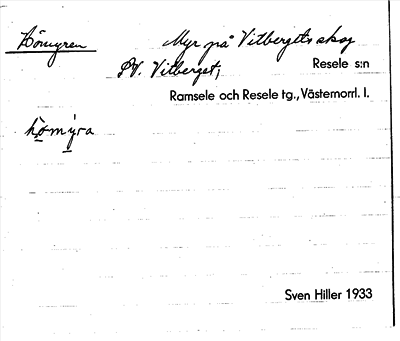 Kömyren Myr på Vitbergets skog
PV. Vitberget; Resele s:n
Ramsele och Resele tg., Västernorrl. l.
kömýra
Sven Hiller 1933